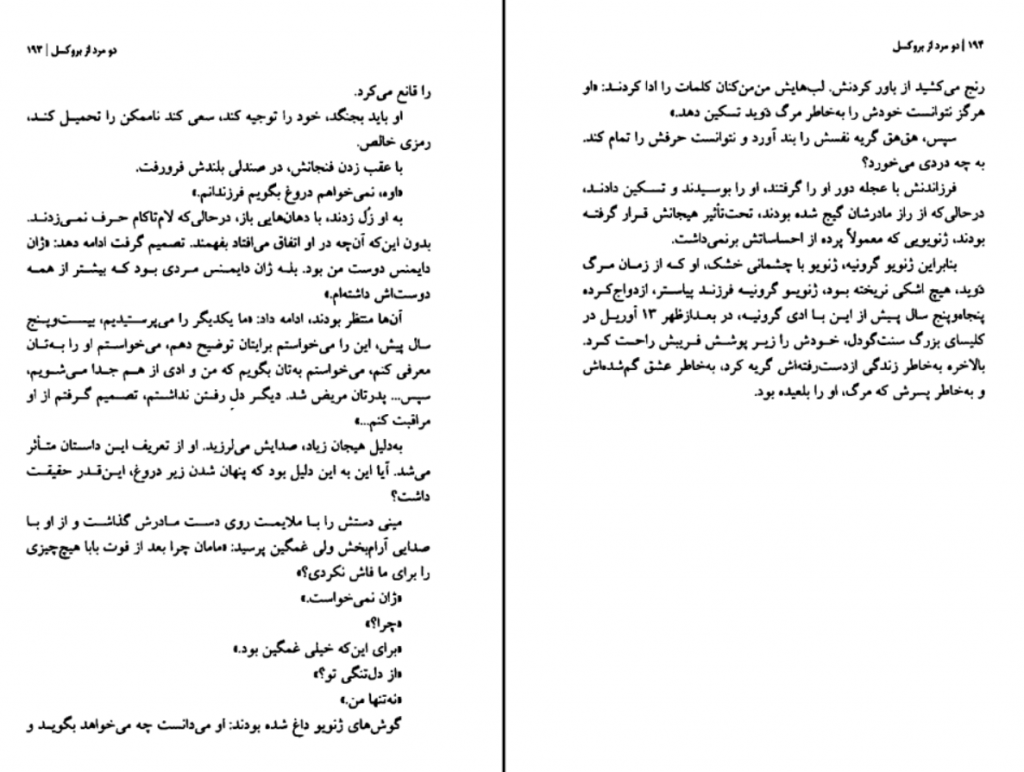 دو مرد از بروکسل | ۱۹۳
را قانع می‌کرد.
او باید بجنگد، خود را توجیه کند، سعی کند ناممکن را تحمیل کند،
رمزی خالص.
با عقب زدن فنجانش، در صندلی بلندش فرورفت.
«اوه، نمی‌خواهم دروغ بگویم فرزندانم.»
به او زُل زدند، با دهان‌هایی باز، درحالی‌که لام‌تاکام حرف نمی‌زدند.
بدون این‌که آن‌چه در او اتفاق می‌افتاد بفهمند. تصمیم گرفت ادامه دهد: «ژان
دایمنس دوست من بود. بلـه ژان دایمنس مردی بود کـه بیشتر از همـه
دوست‌اش داشته‌ام.»
آن‌ها منتظر بودند، ادامه داد: «ما یکدیگر را می‌پرستیدیم، بیست‌وپنج
سال پیش، این را می‌خواستم برایتان توضیح دهم، می‌خواستم او را به‌تان
معرفی کنم، می‌خواستم به‌تان بگویم که من و ادی از هم جدا می‌شویم،
سپس... پدرتان مریض شد. دیگـر دل رفتن نداشتم، تصمیم گرفتم از او
مراقبت کنم...»
به‌دلیل هیجان زیاد، صدایش می‌لرزید. او از تعریف این داستان متأثر
می‌شد. آیا این به این دلیل بود که پنهان شدن زیر دروغ، این‌قدر حقیقت
داشت؟
مینی دستش را بـا ملایمت روی دست مـادرش گذاشت و از او بـا
صدایی آرام‌بخش ولی غمگین پرسید: «مامان چرا بعد از فوت بابا هیچ‌چیزی
را برای ما فاش نکردی؟»
«ژان نمی‌خواست.»
«چرا؟»
«برای این‌که خیلی غمگین بود.»
«از دل‌تنگی تو؟»
«نه‌تنها من.»
گوش‌های ژنویو داغ شده بودند: او می‌دانست چه می‌خواهد بگویـد و
۱۹۴ | دو مرد از بروکسل
رنج می‌کشید از باور کردنش. لب‌هایش من‌من‌کنان کلمات را ادا کردنـد: «او
هرگز نتوانست خودش را به‌خاطر مرگ دَوید تسکین دهد.»
سپس، هق‌هق گریه نفسش را بند آورد و نتوانست حرفش را تمام کند.
به چه دردی می‌خورد؟
فرزاندنش با عجله دور او را گرفتند، او را بوسیدند و تسکین دادند،
درحالی‌که از راز مادرشان گیج شده بودند، تحت‌تأثیر هیجانش قرار گرفتـه
بودند، ژنویویی که معمولاً پرده از احساساتش برنمی‌داشت.
بنابراین ژنویو گرونیه، ژنویو با چشمانی خشک، او کـه از زمان مرگ
دَوید، هیچ اشکی نریخته بـود، ژنویـو گرونیـه فرزنـد پیاستر، ازدواج‌کـرده
پنجاه‌وپنج سال پیش از این بـا ادی گرونیـه، در بعدازظهر ۱۳ آوریـل در
کلیسای بزرگ سنت‌گودل، خـودش را زیـر پوشش فریبش راحـت کـرد.
بالاخره به‌خاطر زندگی ازدست‌رفته‌اش گریه کرد، به‌خاطر عشق گم‌شده‌اش
و به‌خاطر پسرش که مرگ، او را بلعیده بود.